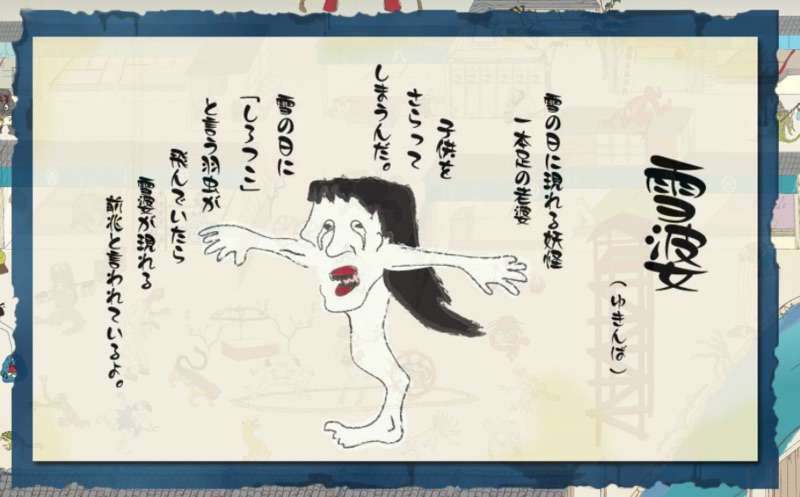 雪婆
（ゆきんば）
雪の日に現れる妖怪
一本足の老婆
子供を
さらって
しまうんだ。
雪の日に
「しろつこ」
と言う羽虫が
飛んでいたら
雪婆が現れる
前兆と言われているよ。